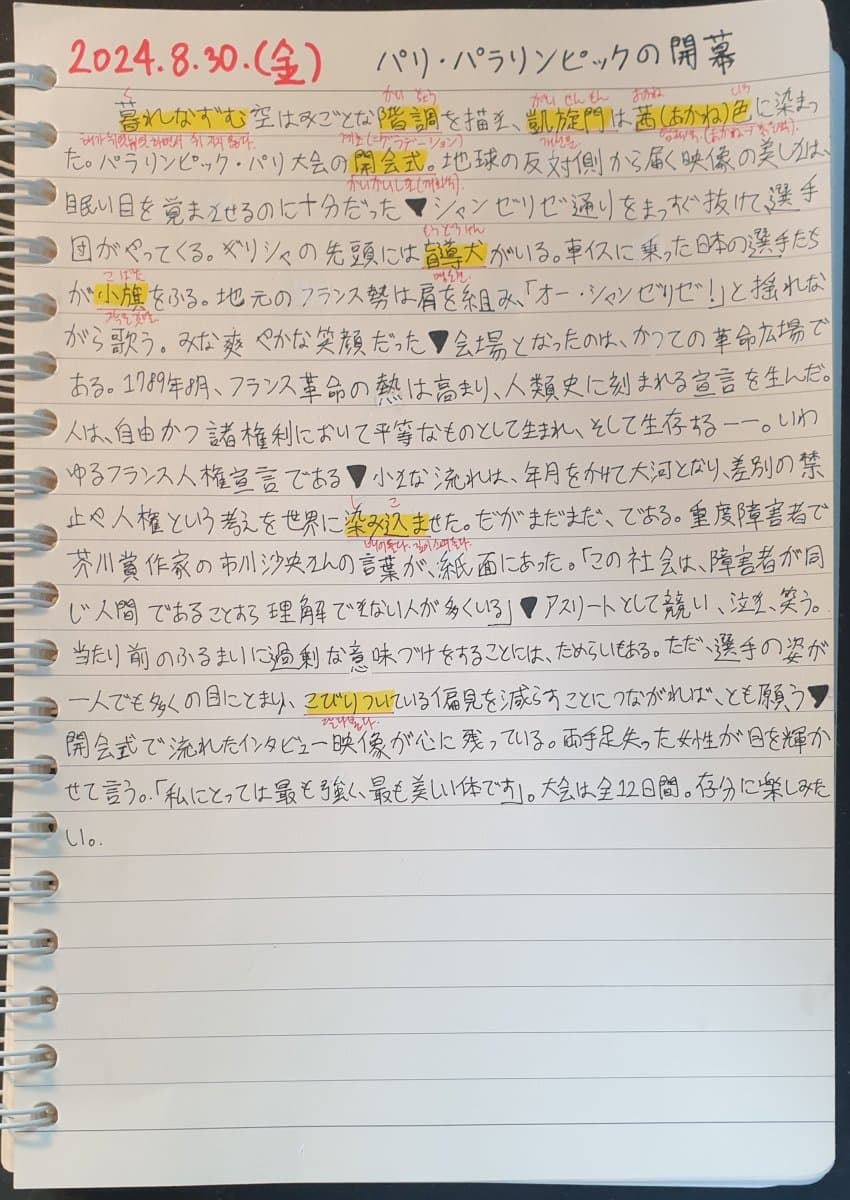 2024.8.30.(金) パリ・パラリンピックの開幕
く かい ちょう がい せん もん あかね いろ
暮れなずむ空はみごとな階調を描き、凱旋門は茜(あかね)色に染まっ
계조(=グラデーション) 개선문
た。パラリンピック・パリ大会の開会式。地球の反対側から届く映像の美しさは、
かいかいしき(개회식)
眠い目を覚まさせるのに十分だった▼シャンゼリゼ通りをまっすぐ抜けて、選手
もう どう けん
団がやってくる。ギリシャの先頭には盲導犬がいる。車イスに乗った日本の選手たち
こばた 맹도견
が小旗をふる。地元のフランス勢は肩を組み、「オー・シャンゼリゼ!」と揺れな
작은 깃발
がら歌う。みな爽やかな笑顔だった▼会場となったのは、かつての革命広場で
ある。1789年8月、フランス革命の熱は高まり、人類史に刻まれる宣言を生んだ。
人は、自由かつ諸権利において平等なものとして生まれ、そして生存するーー。いわ
ゆるフランス人権宣言である▼小さな流れは、年月をかけて大河となり、差別の禁
し こ
止や人権という考えを世界に染み込ませた。だがまだまだ、である。重度障害者で
배어들다. 깊이 스며들다.
芥川賞作家の市川沙央さんの言葉が、紙面にあった。「この社会は、障害者が同
じ人間であることすら理解できない人が多くいる」▼アスリートとして競い、泣き、笑う。
当たり前のふるまいに過剰な意味づけをすることには、ためらいもある。ただ、選手の姿が
一人でも多くの目にとまり、こびりついている偏見を減らすことにつながれば、とも願う▼
달라붙다.
開会式で流れたインタビュー映像が心に残っている。両手足失った女性が目を輝か
せて言う。「私にとっては最も強く、最も美しい体です」。大会は全12日間。存分に楽しみた
い。